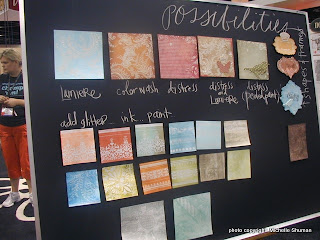 possibilities
Lumiere
colorwash
distress
distress
and
Lumiere
distress
add glitter, ink, paint
photo copyright Michelle Shuman